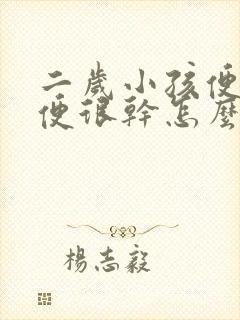 二歲小孩便
便很幹怎麼
楊志毅